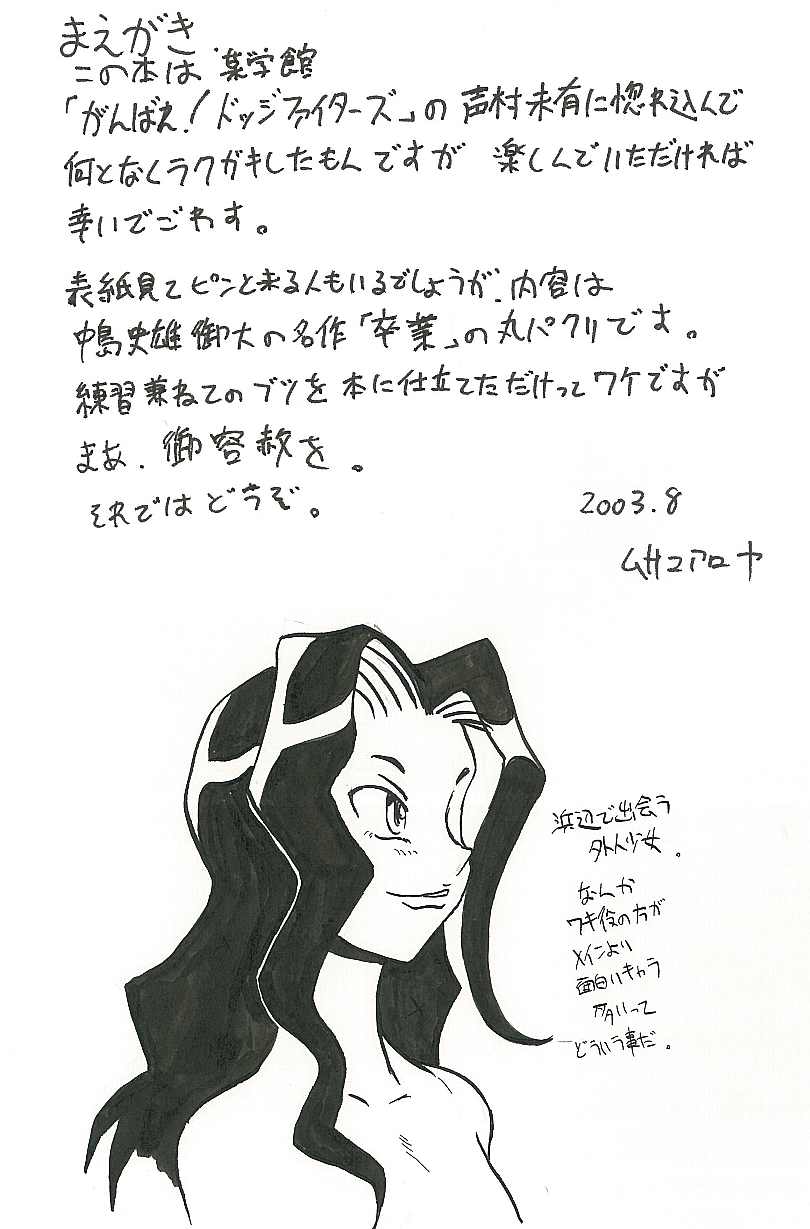 まえがき
この本は 某学館
「がんばえ!ドッジファイターズ」の 声村未有に惚れ込んで
何となくラクガキしたもんですが 楽しんでいただければ
幸いでごわす。
表紙見てピンと来る人もいるでしょうが、内容は
中島史雄御大の名作「卒業」の丸パクリです。
練習兼ねてのブツを本に仕立てただけってワケですが
まあ、御容赦を。
それではどうぞ。
2003.8
ムサコアローヤ
浜辺で出会う
外人少女。
なんか
ワキ役の方が
メインより
面白いキャラ
多いって
どういう事だ。